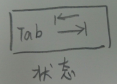 Tab
状态